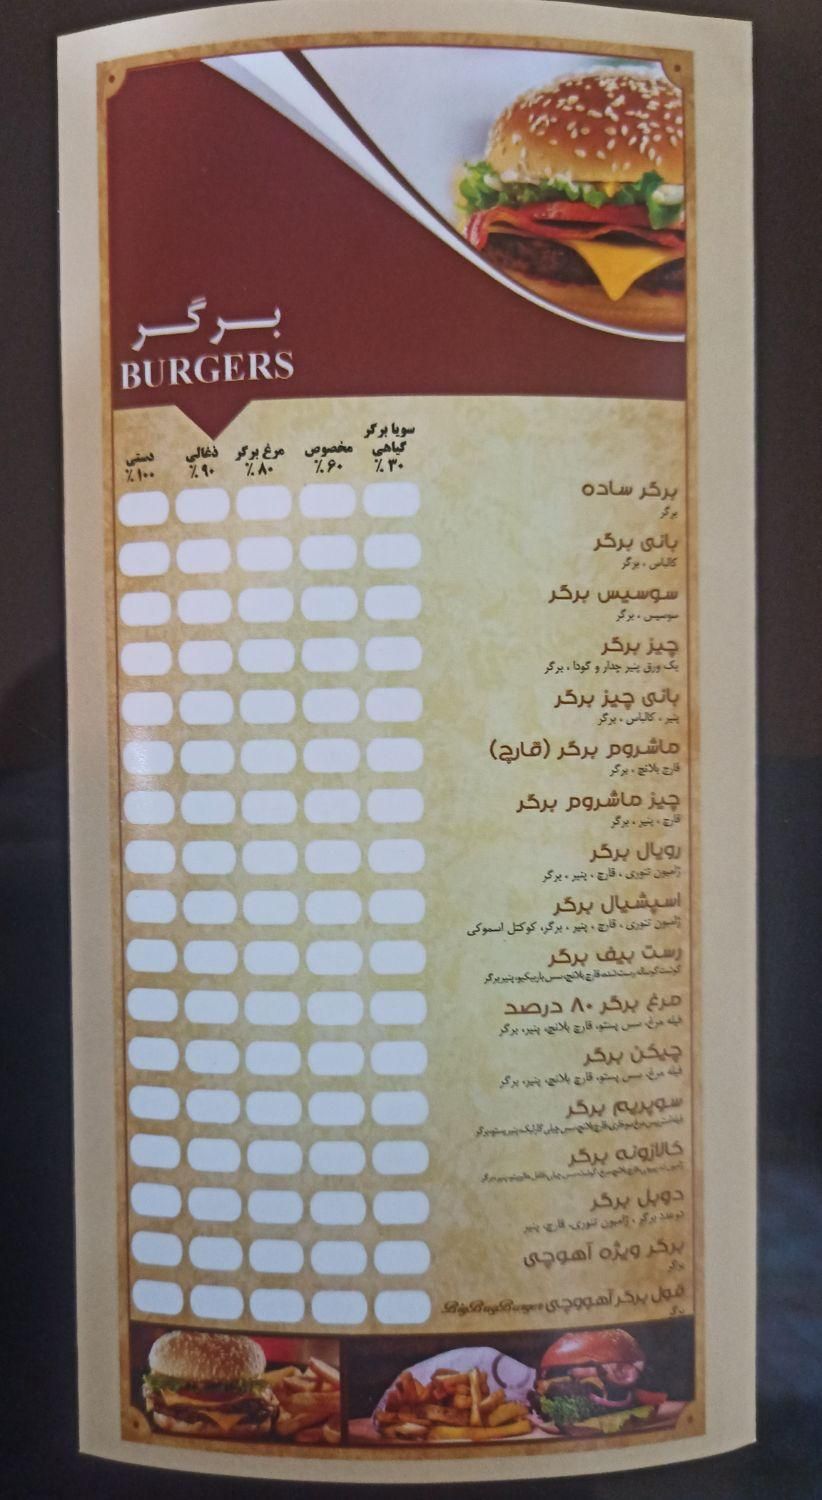 برگر
BURGERS
سویا برگر گیاهی ۳۰ ٪
مخصوص ۶۰ ٪
مرغ برگر ۸۰ ٪
ذغالی ۹۰ ٪
دستی ۱۰۰ ٪
برگر ساده
برگر
بانی برگر
کالباس ، برگر
سوسیس برگر
سوسیس ، برگر
چیز برگر
یک ورق پنیر چدار و گودا ، برگر
بانی چیز برگر
پنیر ، کالباس ، برگر
ماشروم برگر (قارچ)
قارچ بلانچ ، برگر
چیز ماشروم برگر
قارچ ، پنیر ، برگر
رویال برگر
ژامبون تنوری ، قارچ ، پنیر ، برگر
اسپشیال برگر
ژامبون تنوری ، قارچ ، پنیر ، برگر، کوکتل اسموکی
رست بیف برگر
گوشت گوساله رست شده، قارچ بلانچ، سس باربیکیو، پنیر برگر
مرغ برگر ۸۰ درصد
فیله مرغ، سس پستو، قارچ بلانچ، پنیر، برگر
چیکن برگر
فیله مرغ، سس پستو، قارچ بلانچ، پنیر، برگر
سوپریم برگر
کالازونه برگر
دوبل برگر
دو عدد برگر ، ژامبون تنوری، قارچ، پنیر
برگر ویژه آهوچی
برگر
قول برگر آهووچی BigBugBurger
برگر